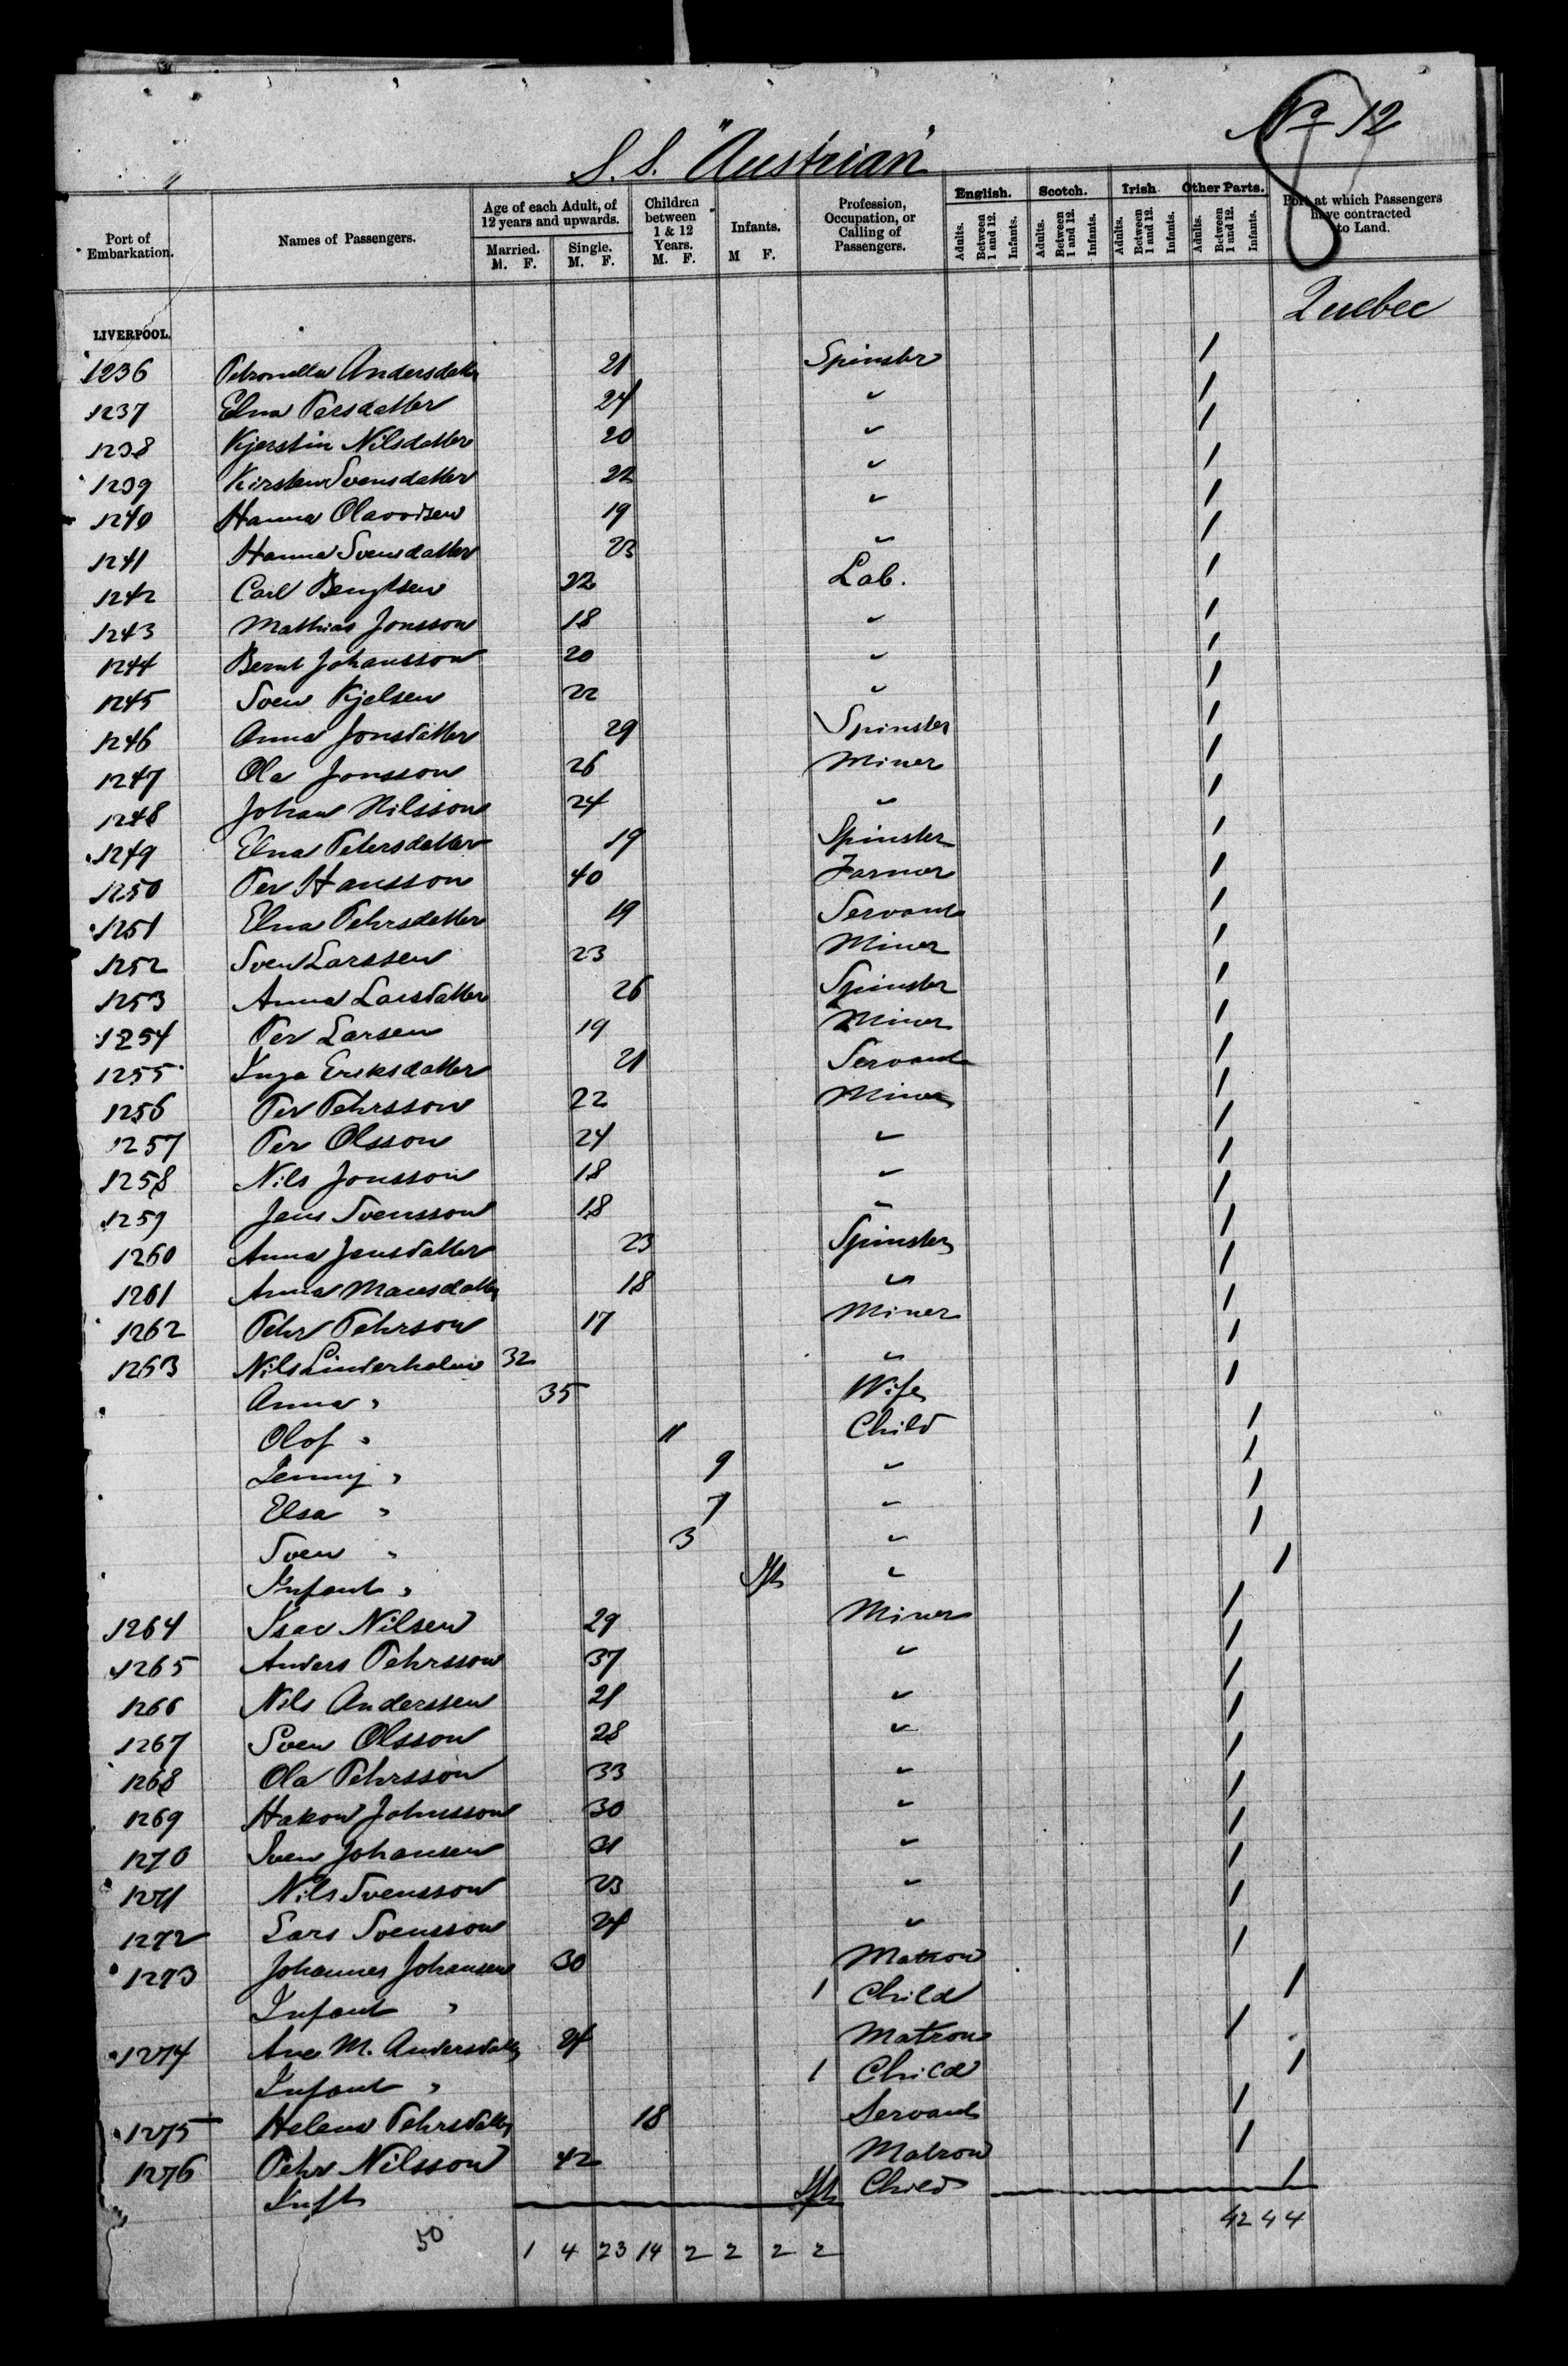 No 12
S.S. "Austrian"
Port of Embarkation. Names of Passengers. Age of each Adult, of 12 years and upwards. Married. M. F. Single. M. F. Children between 1 & 12 Years. M. F. Infants. M F. Profession, Occupation, or Calling of Passengers. English. Adults. Between 1 and 12. Infants. Scotch. Adults. Between 1 and 12. Infants. Irish Adults. Between 1 and 12. Infants. Other Parts. Adults. Between 1 and 12. Infants. Port at which Passengers have contracted to Land.
Quebec
LIVERPOOL.
1236 Petronella Andersdatter 21 Spinster /
1237 Elna Persdatter 24 " /
1238 Kjerstin Nilsdatter 20 " /
1239 Kirsten Svensdatter 22 " /
1240 Hanna 19 " /
1241 Hanna Svensdatter 23 " /
1242 Carl Bengtsen 22 Lab. /
1243 Mathias Jonsson 18 " /
1244 Bernt Johansson 20 " /
1245 Sven Kjelsen 22 " /
1246 Anna Jonsdatter 29 Spinster /
1247 Ola Jonsson 26 Miner /
1248 Johan Nilsson 24 " /
1249 Elna Petersdatter 19 Spinster /
1250 Per Hansson 40 Farmer /
1251 Elna Pehrsdatter 19 Servant /
1252 Sven Larssen 23 Miner /
1253 Anna Larsdatter 26 Spinster /
1254 Per Larsen 19 Miner /
1255 Inga Eriksdatter 21 Servant /
1256 Per Pehrsson 22 Miner /
1257 Per Olsson 24 " /
1258 Nils Jonsson 18 " /
1259 Jens Svensson 18 " /
1260 Anna Jensdatter 23 Spinster /
1261 Anna Mansdatter 18 " /
1262 Pehr Pehrson 17 Miner /
1263 Nils Linderholm 32 " /
Anna " 35 Wife /
Olof " 11 Child /
Jenny " 9 " /
Elsa " 7 " /
Sven " 3 " /
Infant " Inft " /
1264 Isac Nilsen 29 Miner /
1265 Anders Pehrsson 37 " /
1266 Nils Anderssen 21 " /
1267 Sven Olsson 28 " /
1268 Ola Pehrsson 33 " /
1269 Hakon Johnsson 30 " /
1270 Sven Johansen 31 " /
1271 Nils Svensson 23 " /
1272 Lars Svensson 24 " /
1273 Johannes Johansen 30 Matron /
Infant " 1 Child /
1274 Ane M. Andersdatter 24 Matron /
Infant " 1 Child /
1275 Helena Pehrsdatter 18 Servant /
1276 Pehr Nilsson 42 Matron /
Inft Inft Child /
50 1 4 23 14 2 2 2 2 42 4 4